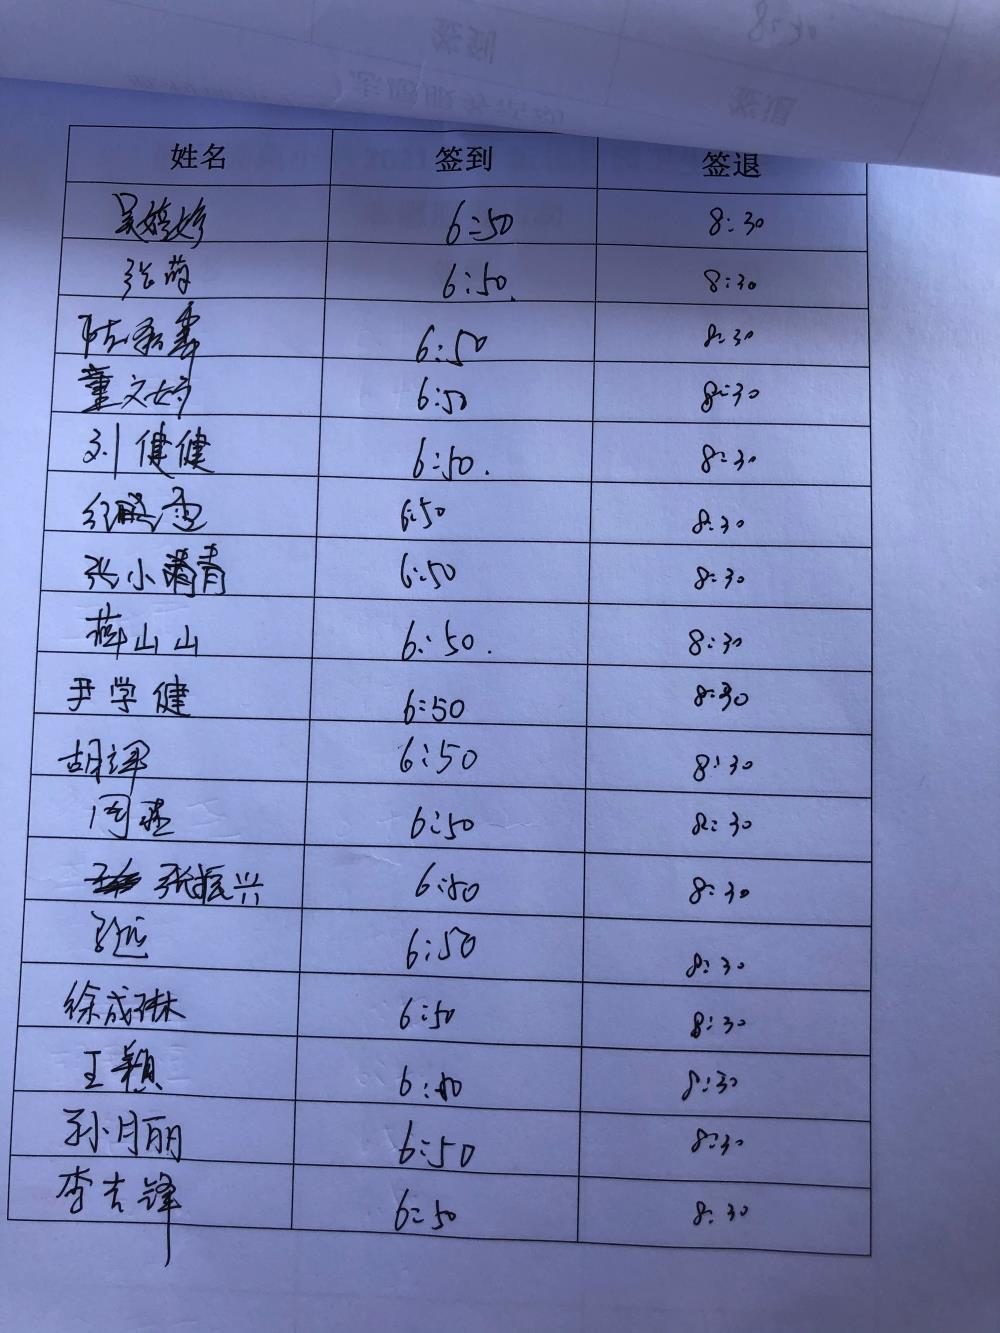 姓名 签到 签退
吴婷婷 6:50 8:30
张荫 6:50 8:30
6:50 8:30
董文婷 6:50 8:30
刘健健 6:50 8:30
6:50 8:30
张小青 6:50 8:30
薛山山 6:50 8:30
尹学健 6:50 8:30
胡译 6:50 8:30
周燕 6:50 8:30
张振兴 6:50 8:30
6:50 8:30
徐成琳 6:50 8:30
王颖 6:50 8:30
孙月丽 6:50 8:30
李吉锋 6:50 8:30